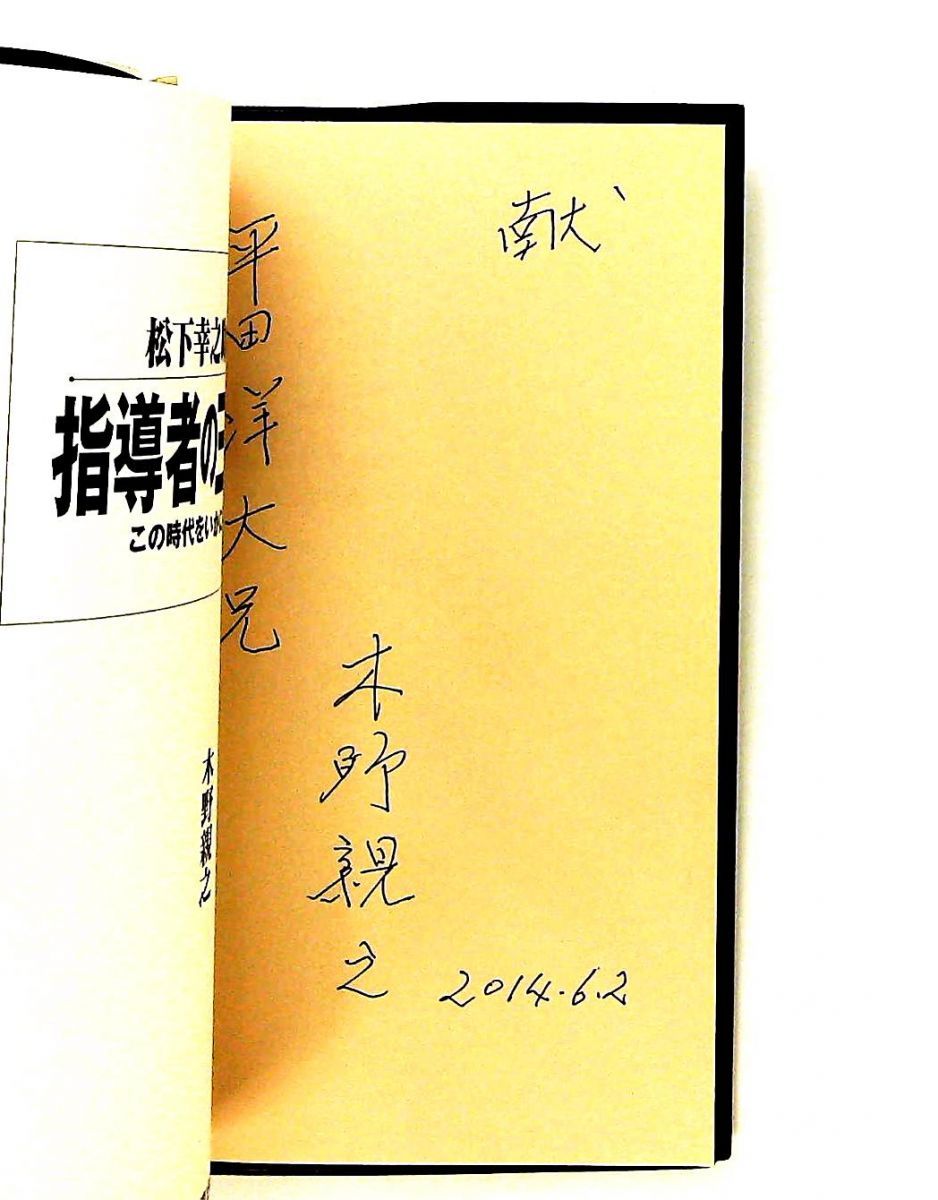 献
平田洋大兄
木野親之
2014.6.2
松下幸之
指導者の
この時代をいか
木野親之